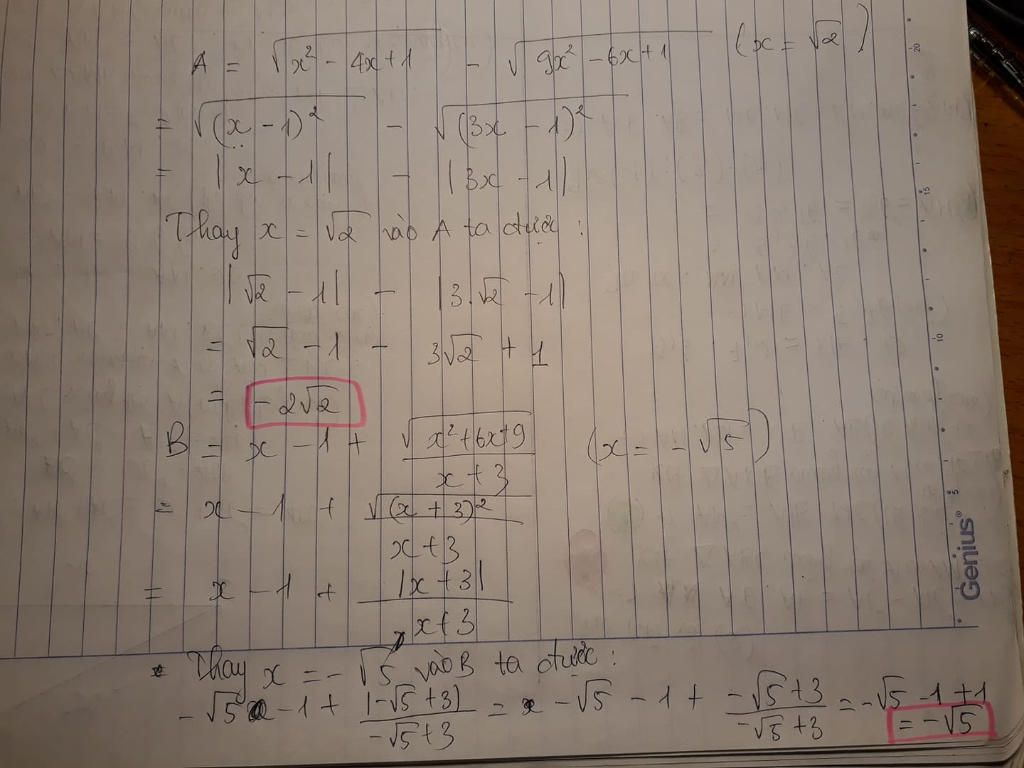 A = √(x² - 4x + 1) - √(9x² - 6x + 1) (x = √2)
= √((x - 1)²) - √((3x - 1)²)
= |x - 1| - |3x - 1|
Thay x = √2 vào A ta được :
|√2 - 1| - |3.√2 - 1|
= √2 - 1 - 3√2 + 1
= -2√2
B = x - 1 + √(x² + 6x + 9) / (x + 3) (x = -√5)
= x - 1 + √((x + 3)²) / (x + 3)
= x - 1 + |x + 3| / (x + 3)
* Thay x = -√5 vào B ta được :
-√5 - 1 + |-√5 + 3| / (-√5 + 3) = -√5 - 1 + (-√5 + 3) / (-√5 + 3) = -√5 - 1 + 1
= -√5
20
15
10
5
Genius